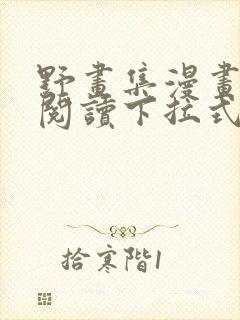 野畫集漫畫
閱讀下拉式
拾寒階1